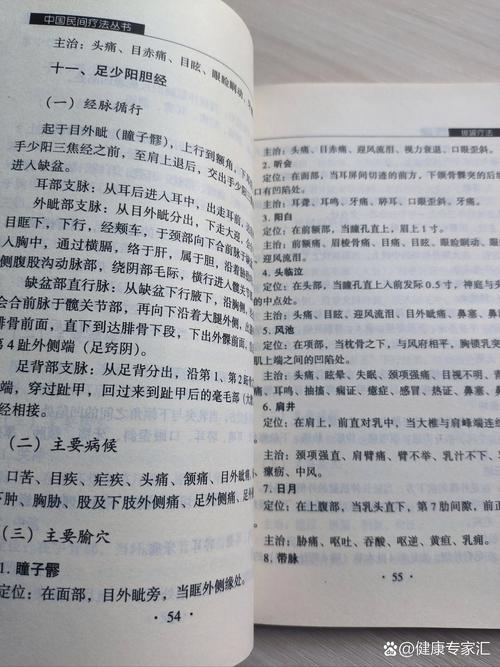 中国民间疗法丛书
主治：头痛、目赤痛、目眩、眼睑瞤动、
十一、足少阳胆经
（一）经脉循行
起于目外眦（瞳子髎），上行到额角，下
手少阳三焦经之前，至肩上退后，交出手少
进入缺盆。
耳部支脉：从耳后进入耳中，出走耳前，
外眦部支脉：从目外眦分出，下走大迎，会
目眶下，下行，经颊车，于颈部向下合前脉于
入胸中，通过横膈，络于肝，属于胆，沿着
侧腹股沟动脉部，绕阴部毛际，横行进入髋关
缺盆部直行脉：从缺盆下行腋下，沿胸侧，
会合前脉于髋关节部，再向下沿着大腿外侧，出
腓骨前面，直下到达腓骨下段，出外踝前面，沿
第4趾外侧端（足窍阴）。
足背部支脉：从足背分出，沿第1、第2
端，穿过趾甲，回过来到趾甲后的毫毛部（大
经相接。
（二）主要病候
口苦、目疾、疟疾、头痛、颌痛、目外眦
下肿、胸胁、股及下肢外侧痛、足外侧痛、
（三）主要腧穴
1. 瞳子髎
定位：在面部，目外眦旁，当眶外侧缘处。
54
拔罐疗法
主治：头痛、目赤痛、迎风流泪、视力衰退、口眼歪斜。
2. 听会
定位：在面部，当耳屏间切迹的前方，下颌骨髁突的后
口有凹陷处。
主治：耳聋、耳鸣、牙痛、聤耳、口眼歪斜、牙痛。
3. 阳白
定位：在前额部，当瞳孔直上，眉上1寸。
主治：前额痛、眉棱骨痛、目痛、目眩、眼睑瞤动、
迎风流泪。
4. 头临泣
定位：在头部，当瞳孔直上入前发际0.5寸，神庭与头
的中点处。
主治：头痛、目眩、迎风流泪、目外眦痛、鼻塞、鼻
5. 风池
定位：在项部，当枕骨之下，与风府相平，胸锁乳突
肌上端之间的凹陷处。
主治：头痛、眩晕、失眠、颈项强痛、目视不明、
青痛、耳鸣、抽搐、痫证、癔症、感冒、热证、鼻塞、
6. 肩井
定位：在肩上，前直对乳中，当大椎与肩峰端连线
主治：颈项强直、肩臂痛、臂不举、乳汁不下、
瘰疬、中风。
7. 日月
定位：在上腹部，当乳头直下，第7肋间隙，前正
主治：胁痛、呕吐、吞酸、呃逆、黄疸、乳痈。
8. 带脉
55
@健康专家汇